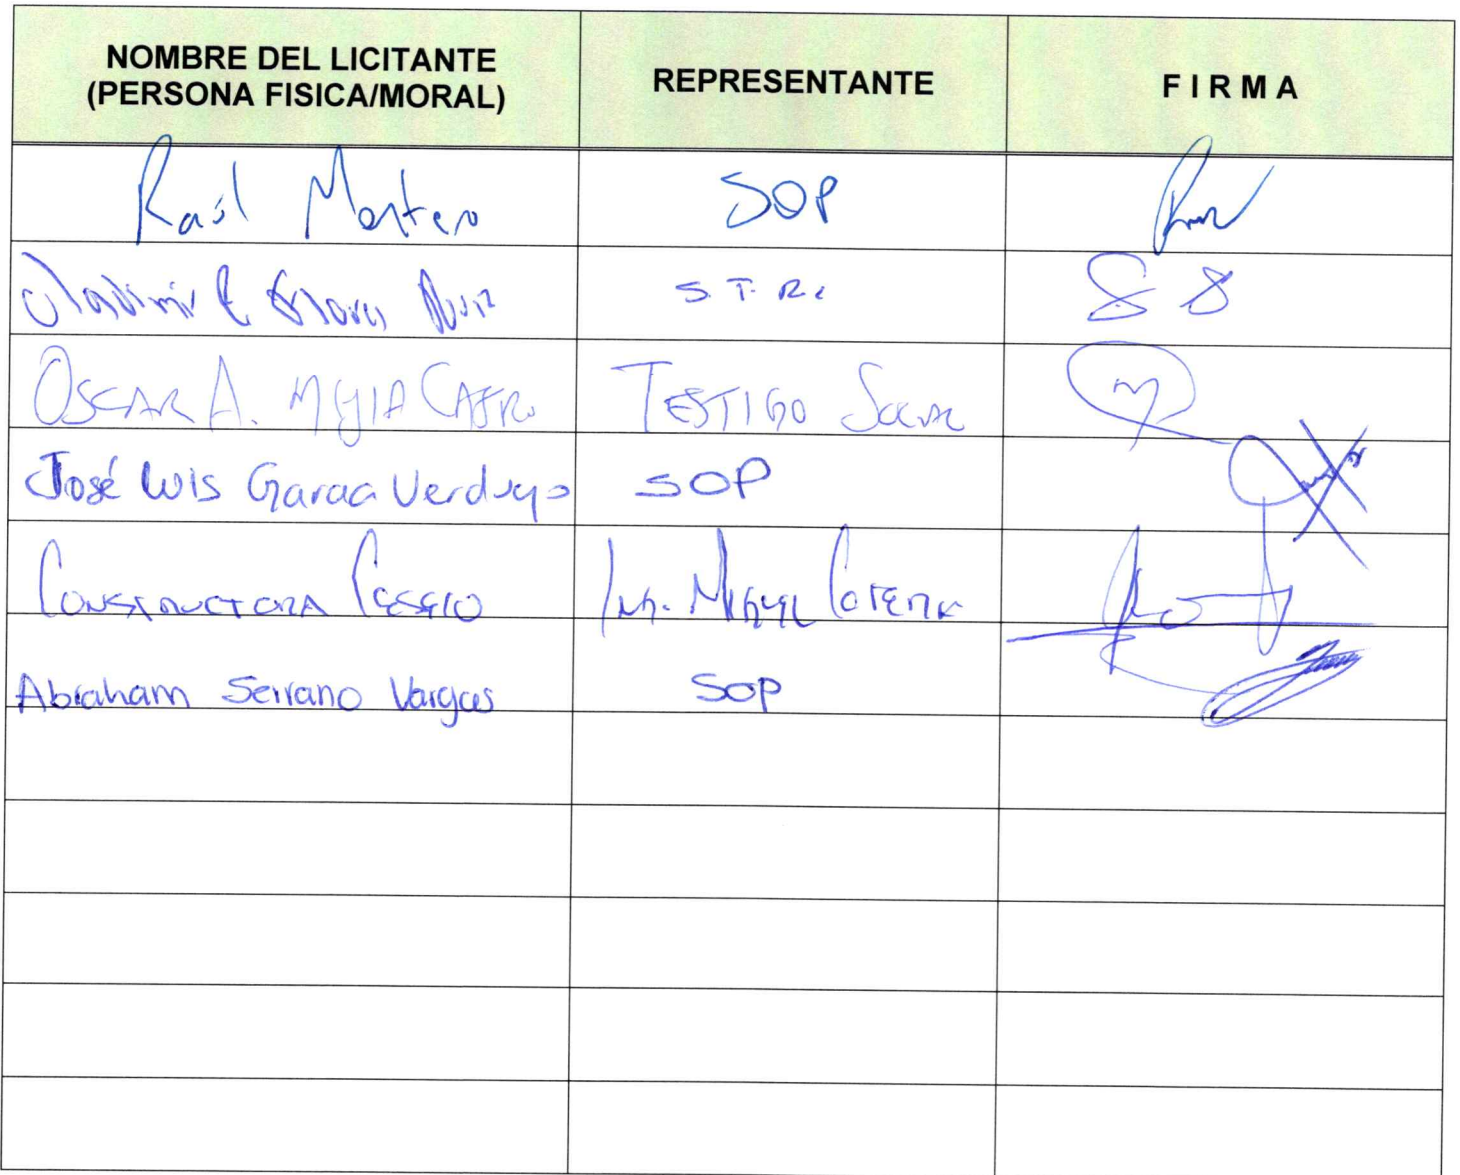 NOMBRE DEL LICITANTE
(PERSONA FISICA/MORAL)
REPRESENTANTE
F I R M A
Raúl Montero SOP
S.T.R.
OSCAR A. MEJIA CASTRO TESTIGO SOCIAL
José Luis Garcia Verdugo SOP
CONSTRUCTORA ING. MIGUEL
Abraham Serrano Vargas SOP